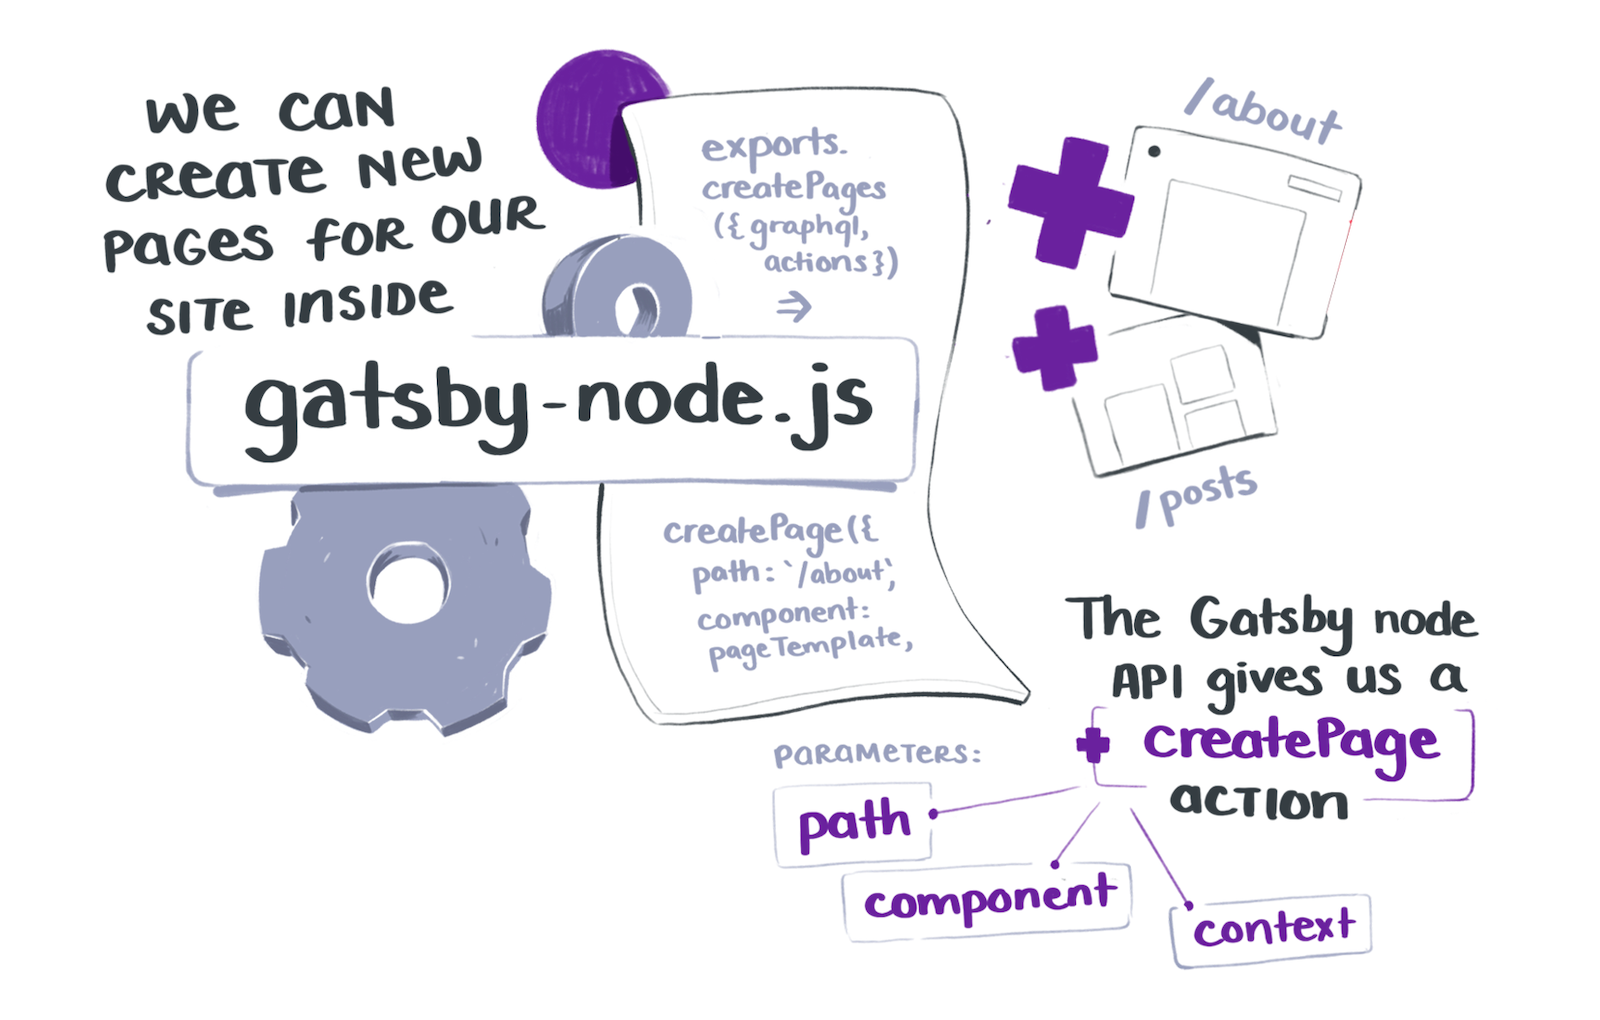 We can
create new
pages for our
site inside
gatsby-node.js
exports.
createPages
({graphql,
actions})
⇒
createPage({
path: `/about`,
component:
pageTemplate,
/about
/posts
The Gatsby node
API gives us a
createPage
action
Parameters:
path
component
context